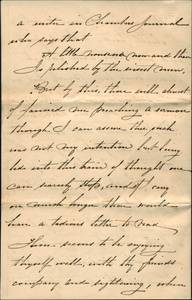 a writer in Chambers Journal
who says that
"A little nonsense now and then
Is relished by the wisest men.
But by this, thee will almost
of fancied me preaching a sermon
though I can assure thee such
was not my intention but being
led into this train of thought one
can rarely stop, and if I say
on much longer thee would
have a tedious letter to read
Thee seems to be enjoying
thyself well, with thy friends
company and sightseeing, when